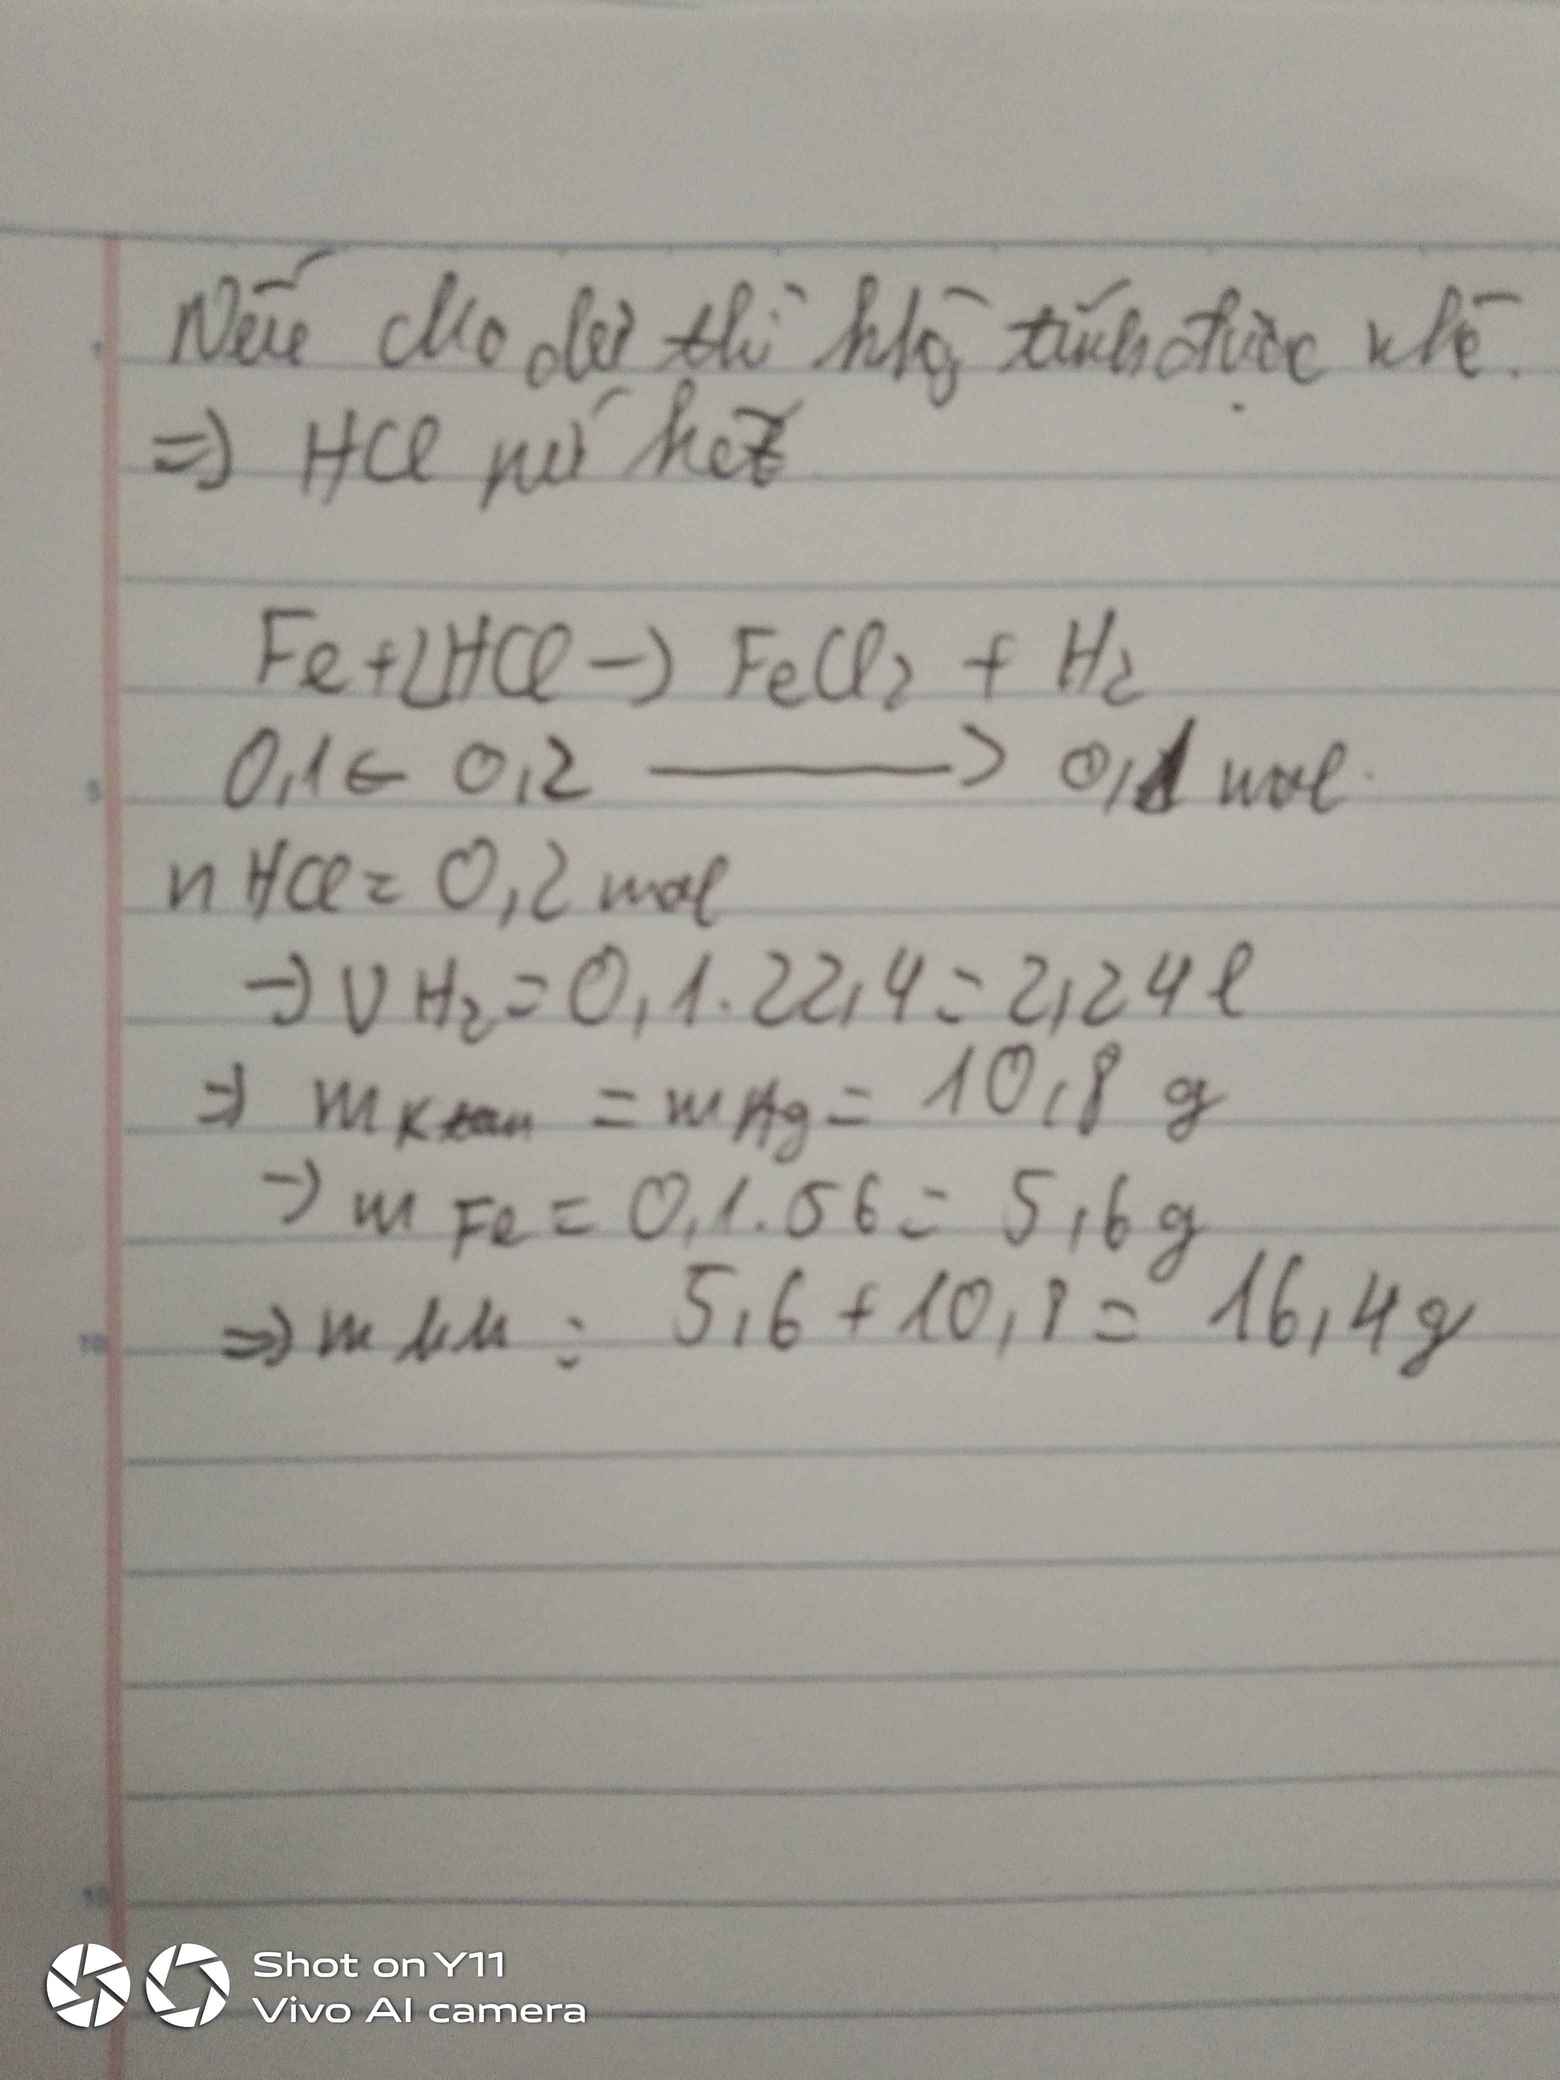 Nếu cho dư thì khg tính được nhé.
=) HCl pư hết
Fe+2HCl -) FeCl2 + H2
5
0,1 ← 0,2 ———> 0,1 mol.
n HCl = 0,2 mol
-) V H2 = 0,1.22,4 = 2,24 l
=) m K tan = m Ag = 10,8 g
-) m Fe = 0,1.56 = 5,6 g
10
=) m hh = 5,6 + 10,8 = 16,4 g
15
Shot on Y11
Vivo AI camera